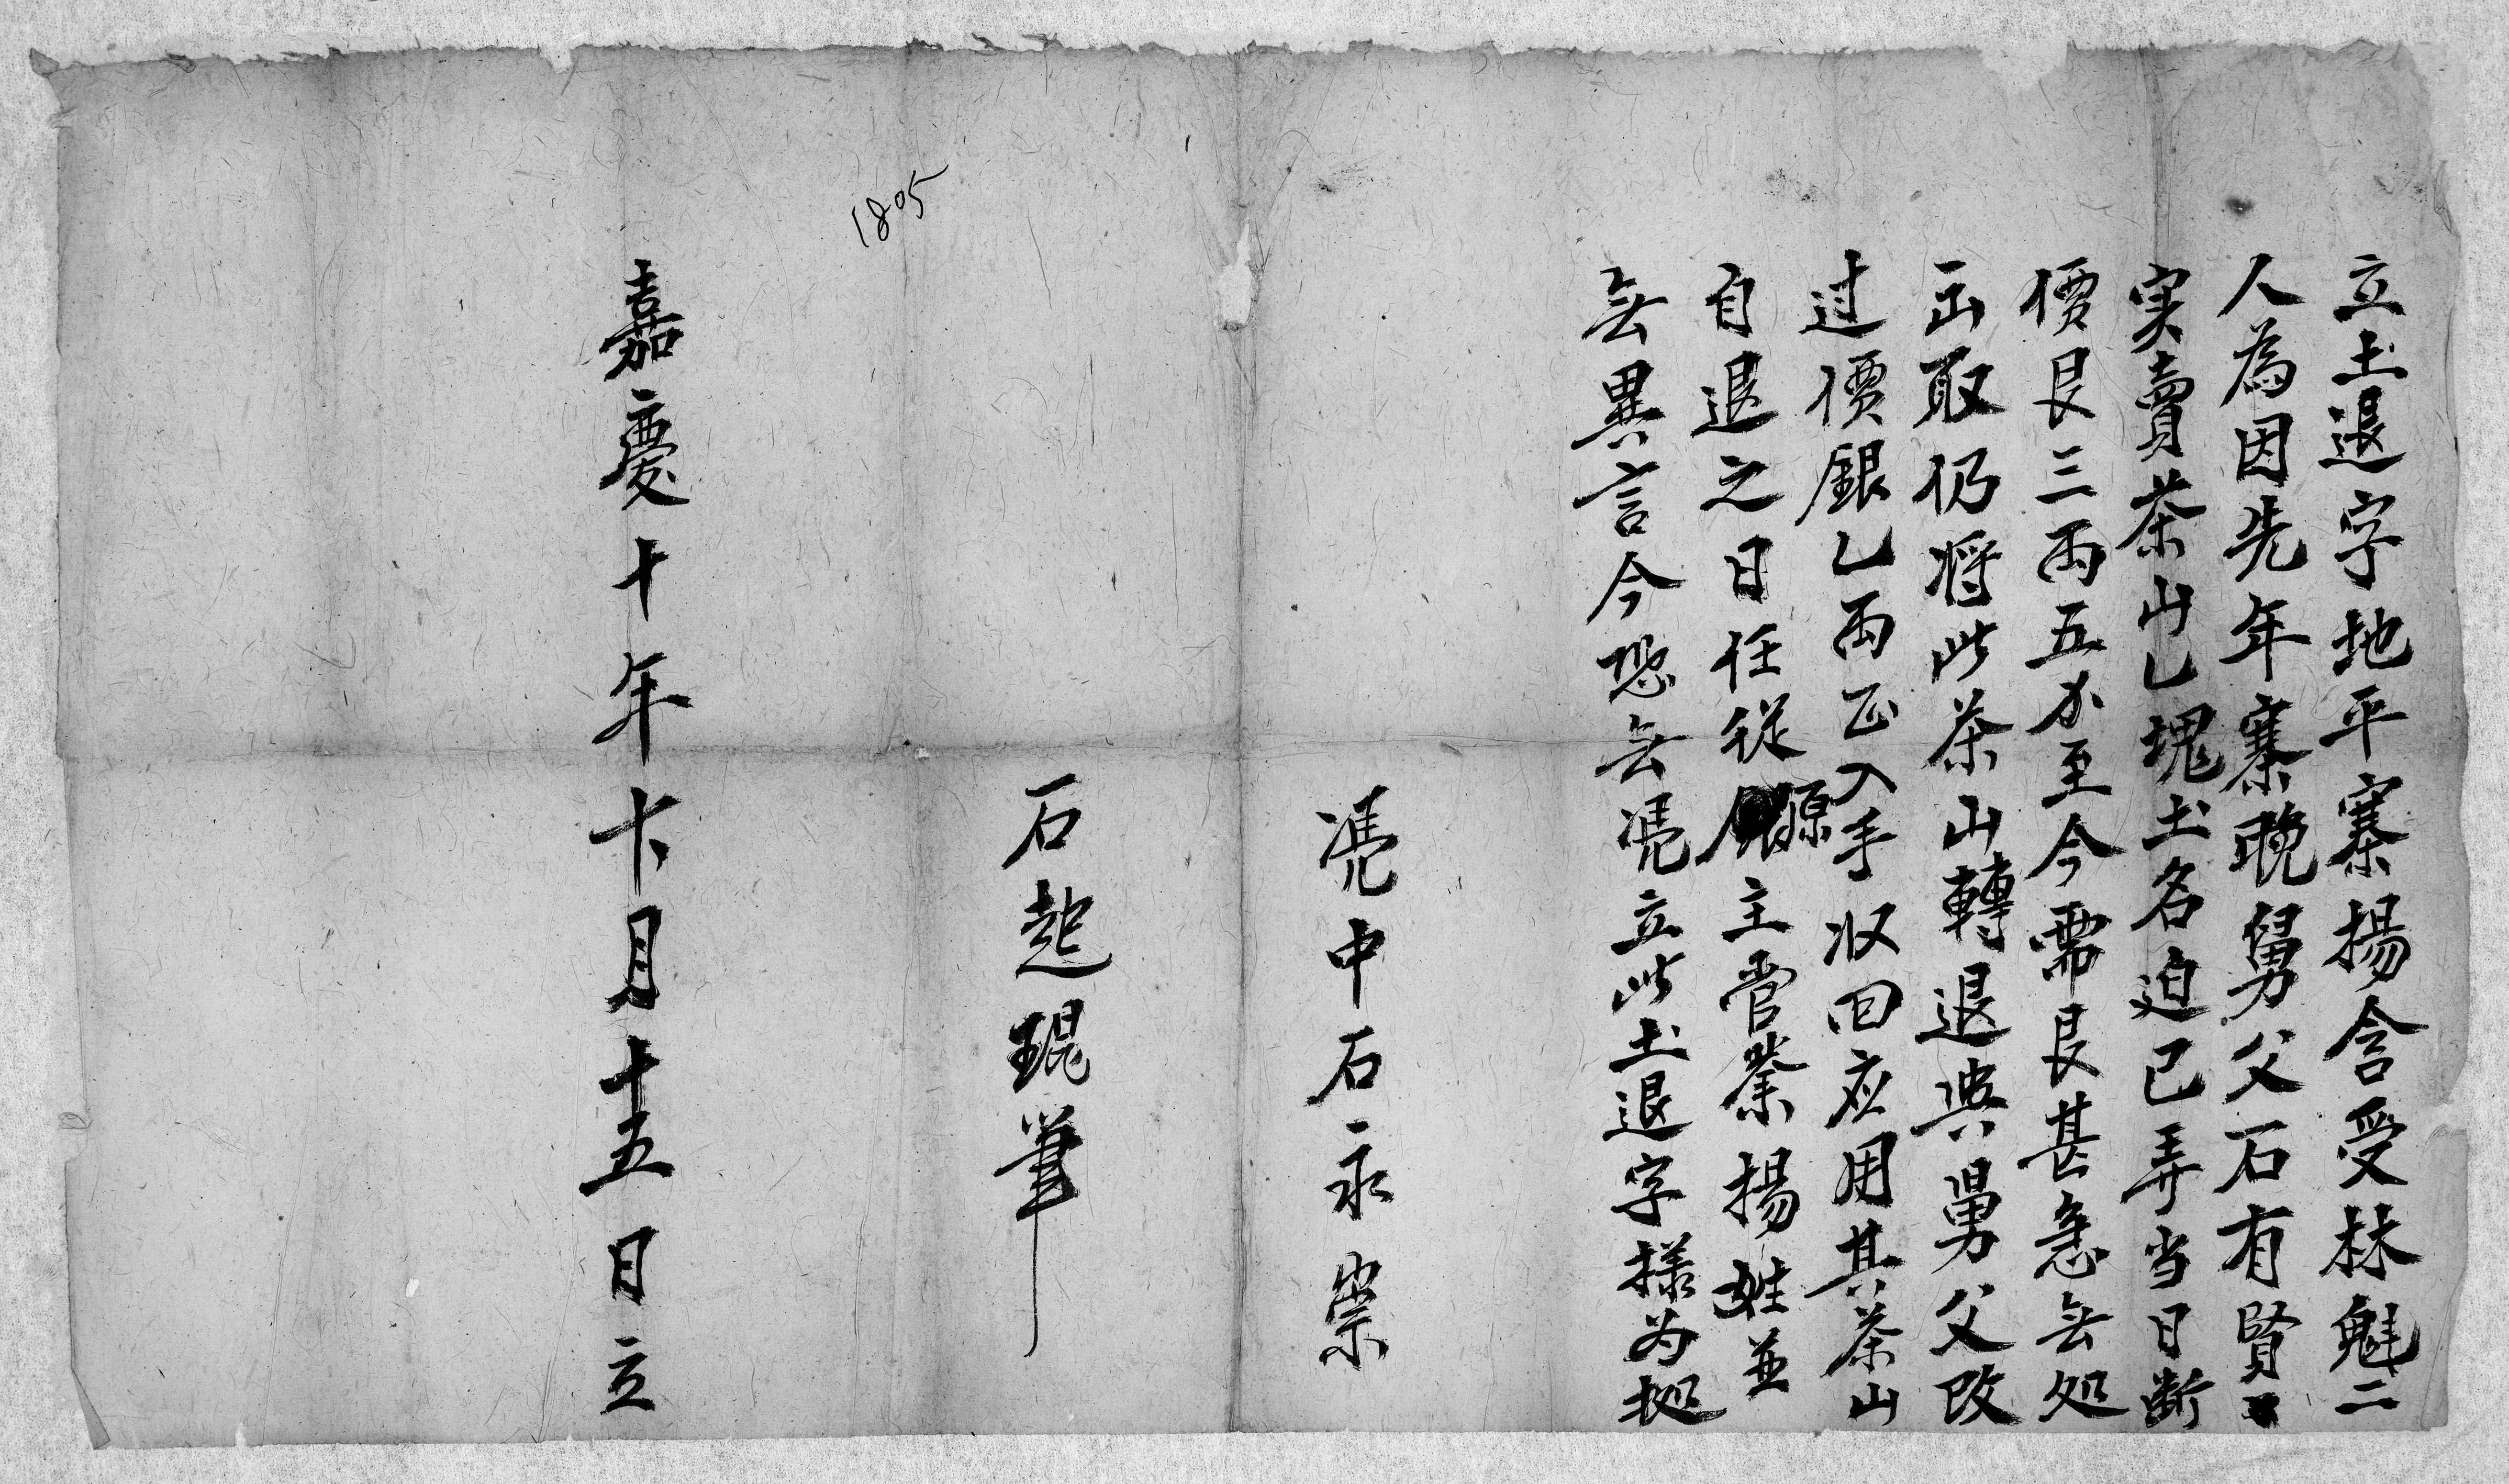 立土退字地平寨揚含受林魁二
人為因先年寨晚舅父石有賢
实賣茶山乚塊土名迫已弄当日断
價艮三両五才至今需艮甚急無処
出取仍将此茶山轉退與舅父改
过價銀乚両正入手收回应用其茶山
自退之日任從源主管業揚姓並
無異言今恐無凭立此土退字樣为拠
凭中石永崇
石起琨筆
1805
嘉慶十年十月十五日立